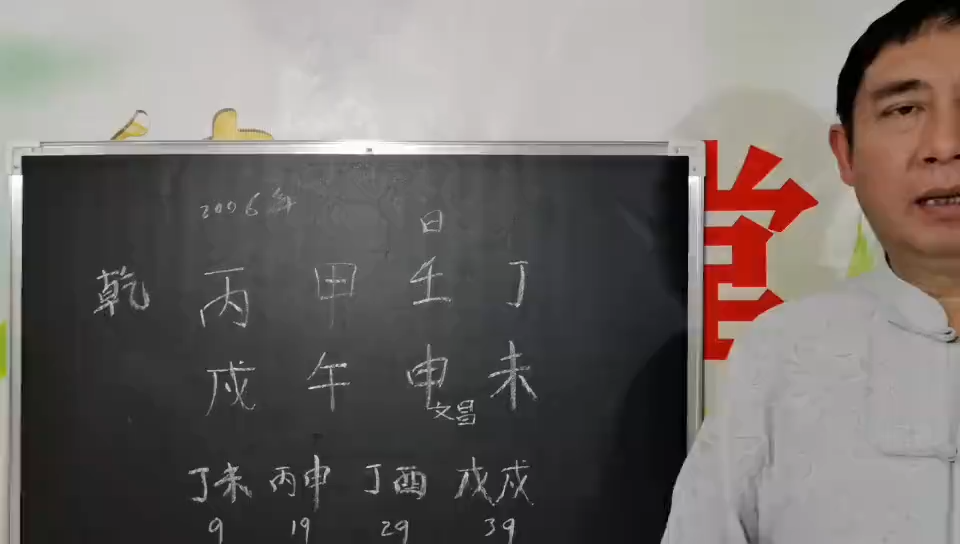 2006年
日
乾 丙 甲 壬 丁
戌 午 申 未
文昌
丁未 丙申 丁酉 戊戌
9 19 29 39
堂